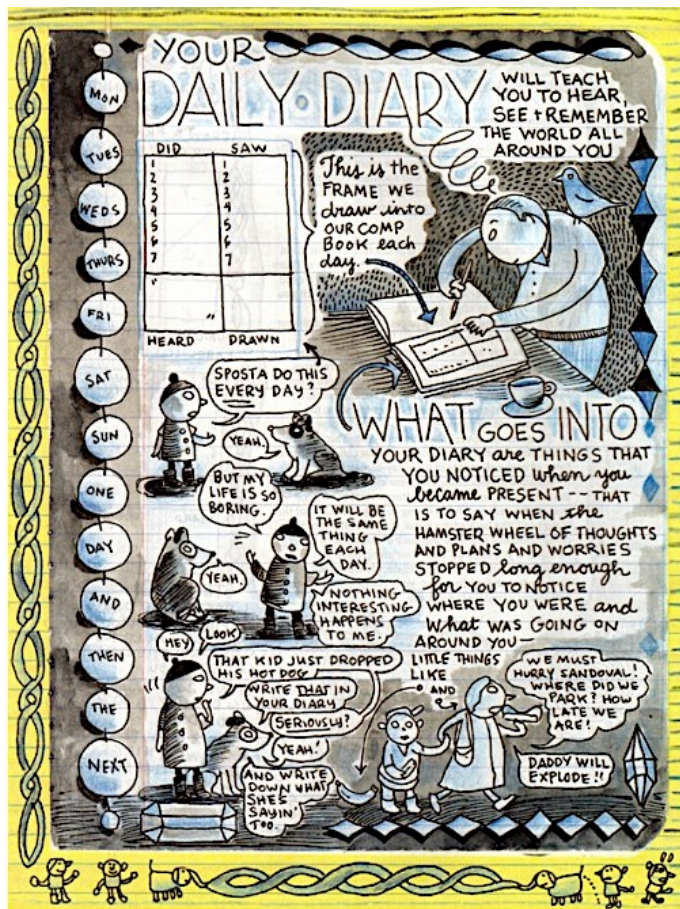 YOUR
DAILY DIARY
WILL TEACH
YOU TO HEAR,
SEE + REMEMBER
THE WORLD ALL
AROUND YOU
MON
TUES
WEDS
THURS
FRI
SAT
SUN
ONE
DAY
AND
THEN
THE
NEXT
DID SAW
1 1
2 2
3 3
4 4
5 5
6 6
7 7
"
"
HEARD DRAWN
This is the
FRAME WE
draw into
OUR COMP
BOOK each
day.
SPOSTA DO THIS
EVERY DAY?
YEAH.
BUT MY
LIFE IS SO
BORING.
IT WILL BE
THE SAME
THING
EACH
DAY.
YEAH.
NOTHING
INTERESTING
HAPPENS
TO ME.
HEY
LOOK
THAT KID JUST DROPPED
HIS HOT DOG
WRITE THAT IN
YOUR DIARY
SERIOUSLY?
YEAH!
AND WRITE
DOWN WHAT
SHE'S
SAYIN'
TOO.
WHAT GOES INTO
YOUR DIARY are THINGS THAT
YOU NOTICED when you
became PRESENT -- THAT
IS TO SAY WHEN the
HAMSTER WHEEL OF THOUGHTS
AND PLANS AND WORRIES
STOPPED long enough
for YOU TO NOTICE
WHERE YOU WERE and
What WAS GOING ON
AROUND YOU—
LITTLE THINGS
LIKE
AND
WE MUST
HURRY SANDOVAL!
WHERE DID WE
PARK? HOW
LATE WE
ARE!
DADDY WILL
EXPLODE!!